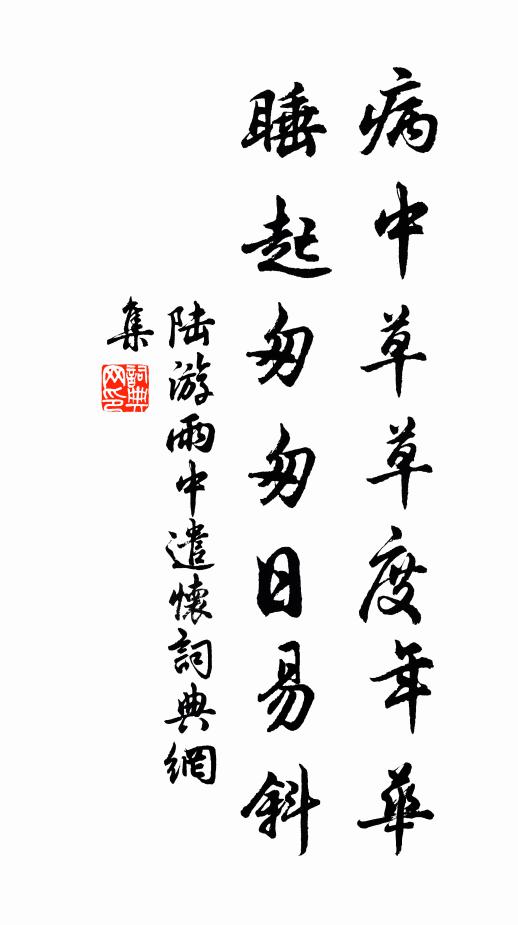 病中草草度年華
睡起匆匆日易斜
陆游雨中遣懷詞典網
集
詞典网印